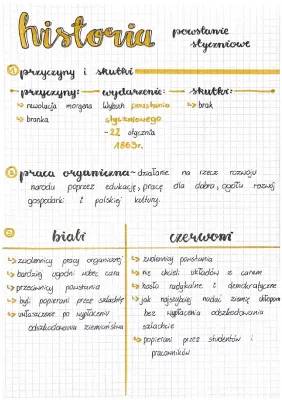 historia
powstanie
styczniowe
1 przyczyny i skutki
przyczyny: wydarzenie: skutki:
rewolucja moralna Wybuch powstania brak
branka styczniowego
-22 stycznia
1863r.
2 praca organiczna - działanie na rzecz rozwoju
narodu poprzez edukację, pracę dla dobra, ogółu rozwój
gospodarki i polskiej kultury.
3
biali czerwoni
zwolennicy pracy organicznej
bardziej ugodni wobec cara
przeciwnicy powstania
byli popierani przez szlachtę
uwłaszczenie po wypłaceniu
odszkodowania ziemiaństwu
zwolennicy powstania
nie chcieli układów z carem
hasła radykalne i demokratyczne
jak najszybciej nadać ziemię chłopom
bez wypłacenia odszkodowania
szlachcie
popierani przez studentów i
pracowników